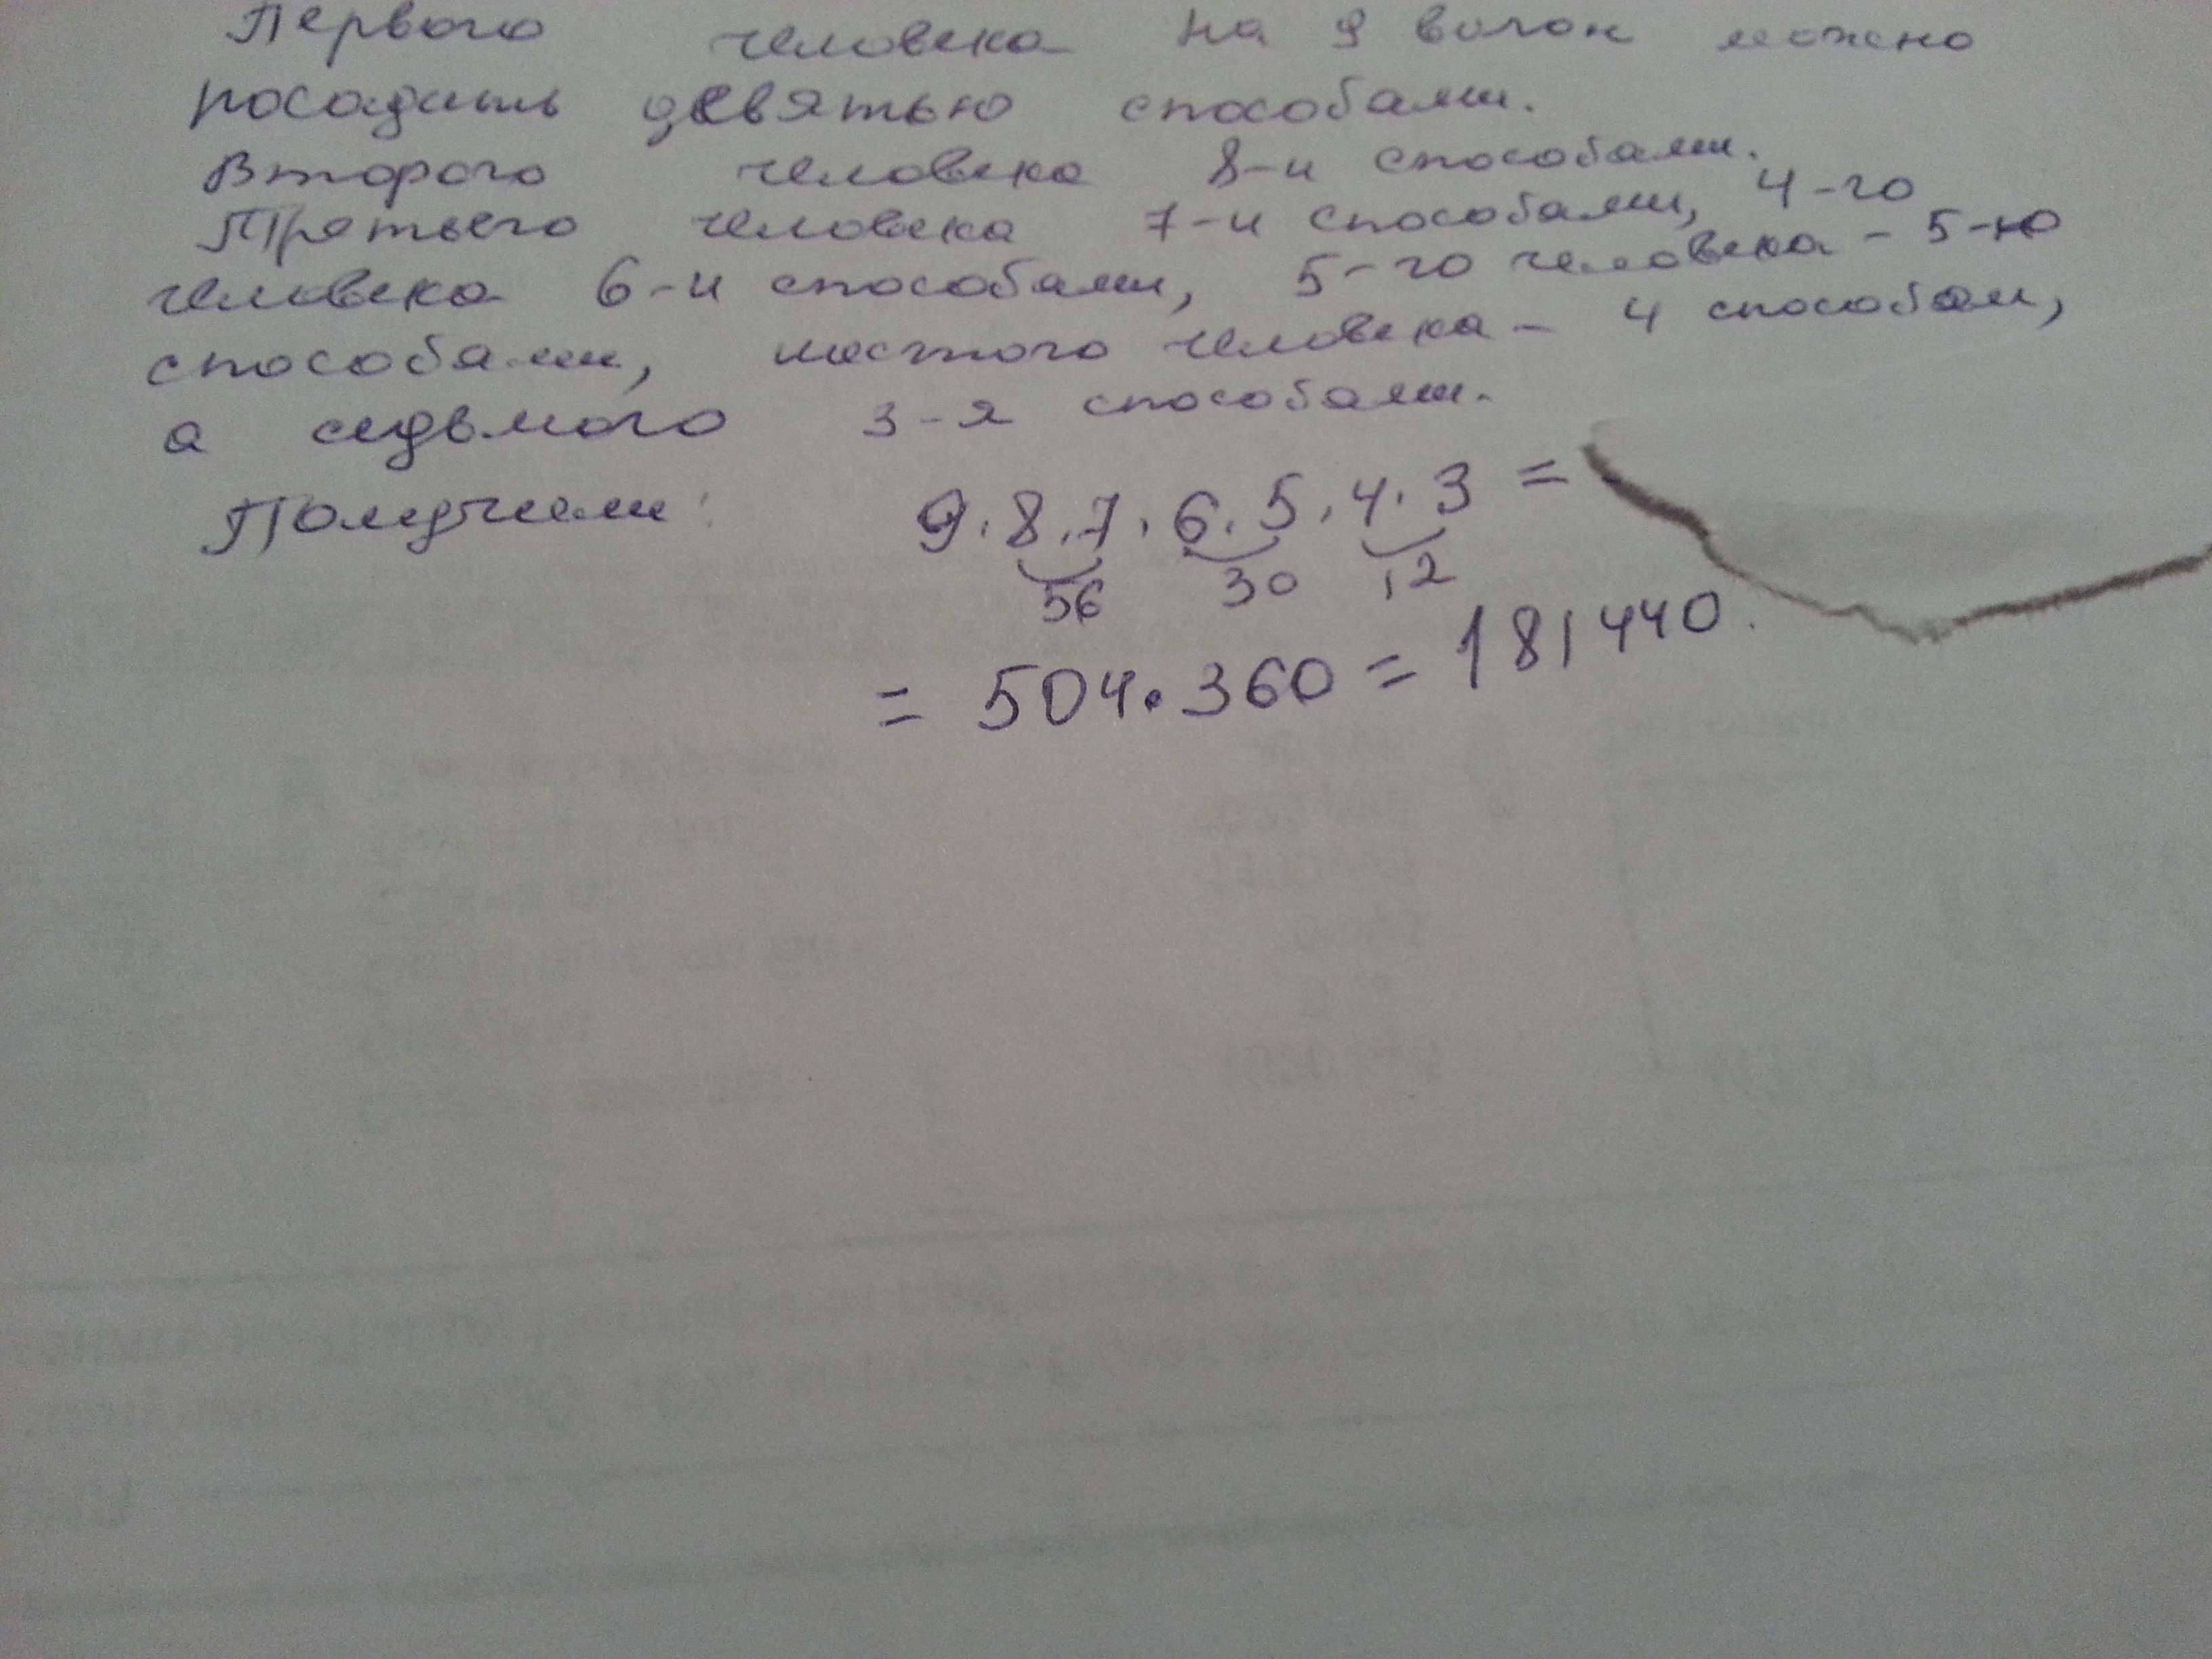 Первого человека на 9 вагон можно
посадить девятью способами.
Второго человека 8-и способами.
Третьего человека 7-и способами, 4-го
человека 6-и способами, 5-го человека - 5-ю
способами, шестого человека - 4 способам,
а седьмого 3-я способами.
Получим: 9·8·7·6·5·4·3 =
56 30 12
= 504·360 = 181440.